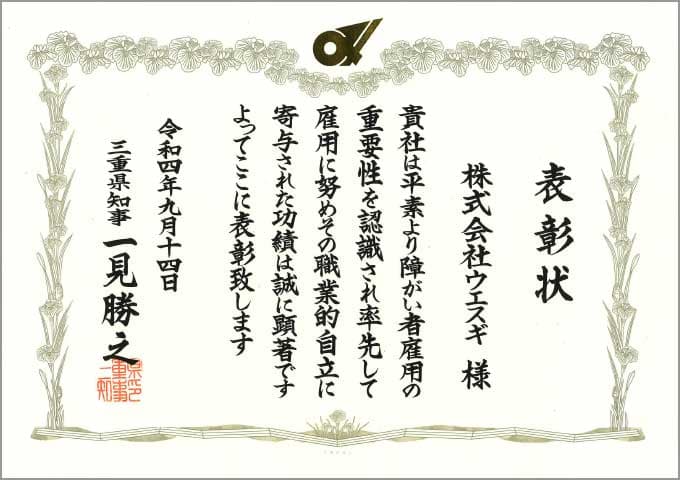 表彰状
株式会社ウエスギ 様
貴社は平素より障がい者雇用の
重要性を認識され率先して
雇用に努めその職業的自立に
寄与された功績は誠に顕著です
よってここに表彰致します
令和四年九月十四日
三重県知事 一見勝之